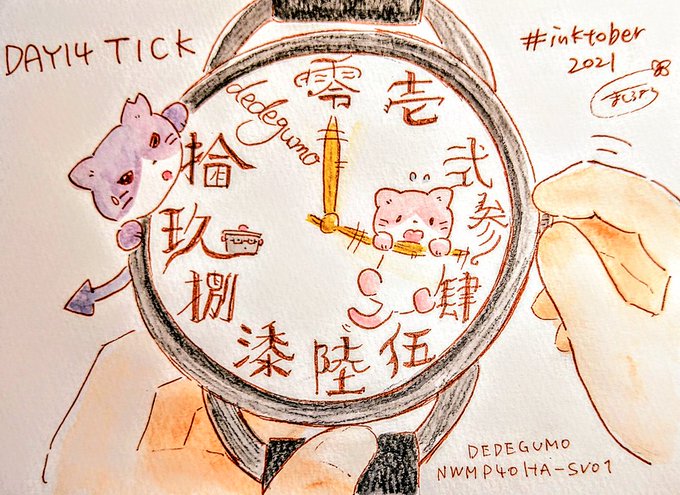 DAY14 TICK
#inktober
2021
dedegumo
零
壱
弐
参
肆
伍
陸
漆
捌
玖
拾
DEDEGUMO
NWMP40HA-SV01